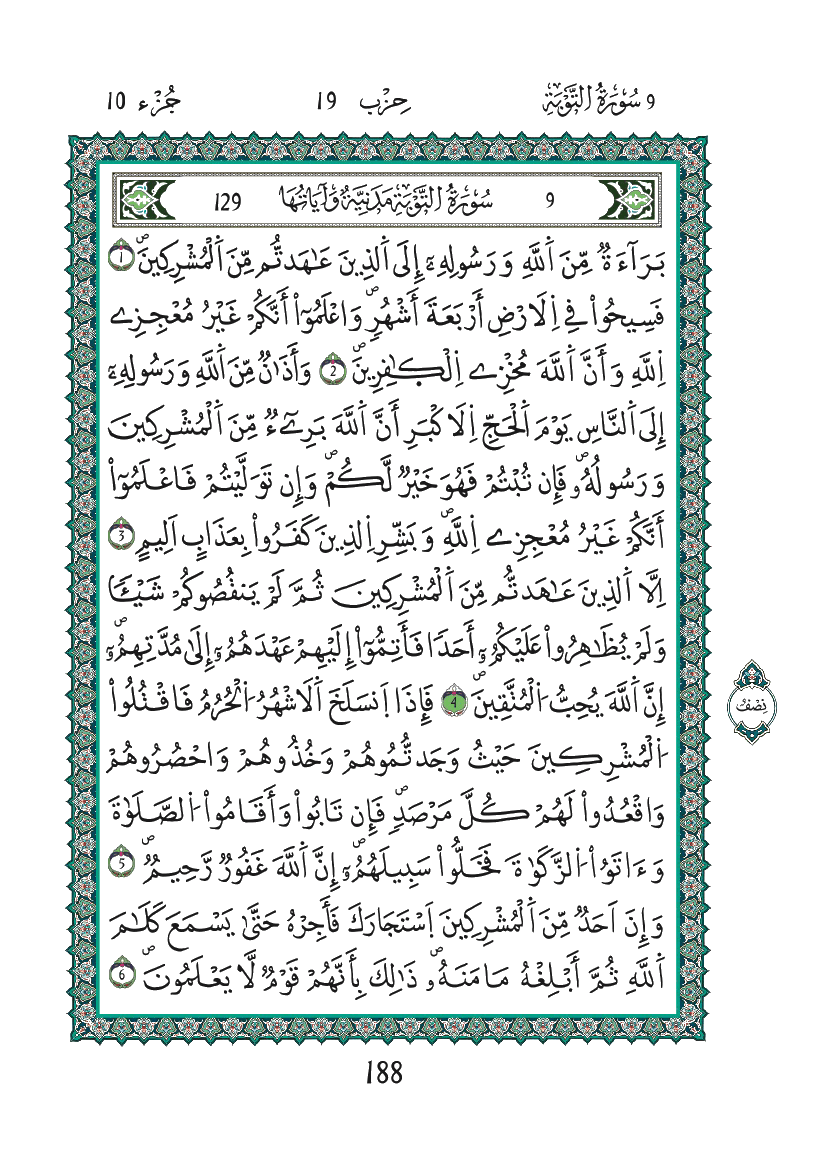 9 سُورَةُ التَّوْبَةِ حِزْب 19 جُزْء 10
9 سُورَةُ التَّوْبَةِ مَدَنِيَّةٌ وَءَايَاتُهَا 129
بَرَآءَةٌ مِّنَ اَ۬للَّهِ وَرَسُولِهِۦٓ إِلَى اَ۬لذِينَ عَٰهَدتُّم مِّنَ اَ۬لْمُشْرِكِينَۖ 1
فَسِيحُواْ فِے اِ۬لَارْضِ أَرْبَعَةَ أَشْهُرٖۖ وَاعْلَمُوٓاْ أَنَّكُمْ غَيْرُ مُعْجِزِے
اِ۬للَّهِ وَأَنَّ اَ۬للَّهَ مُخْزِے اِ۬لْكٰ۪فِرِينَۖ 2 وَأَذَٰنٌ مِّنَ اَ۬للَّهِ وَرَسُولِهِۦٓ
إِلَى اَ۬لنَّاسِ يَوْمَ اَ۬لْحَجِّ اِ۬لَاكْبَرِ أَنَّ اَ۬للَّهَ بَرِےٓءٌ مِّنَ اَ۬لْمُشْرِكِينَ
وَرَسُولُهُۥۖ فَإِن تُبْتُمْ فَهُوَ خَيْرٌ لَّكُمْۖ وَإِن تَوَلَّيْتُمْ فَاعْلَمُوٓاْ
أَنَّكُمْ غَيْرُ مُعْجِزِے اِ۬للَّهِۖ وَبَشِّرِ اِ۬لذِينَ كَفَرُواْ بِعَذَابٍ اَلِيمٍ 3
اِلَّا اَ۬لذِينَ عَٰهَدتُّم مِّنَ اَ۬لْمُشْرِكِينَ ثُمَّ لَمْ يَنقُصُوكُمْ شَيْـٔاٗ
وَلَمْ يُظَٰهِرُواْ عَلَيْكُمُۥٓ أَحَداٗ فَأَتِمُّوٓاْ إِلَيْهِمْ عَهْدَهُمُۥٓ إِلَىٰ مُدَّتِهِمُۥٓۖ
إِنَّ اَ۬للَّهَ يُحِبُّ اُ۬لْمُتَّقِينَۖ 4 فَإِذَا اَ۪نسَلَخَ اَ۬لَاشْهُرُ اُ۬لْحُرُمُ فَاقْتُلُواْ
اُ۬لْمُشْرِكِينَ حَيْثُ وَجَدتُّمُوهُمْ وَخُذُوهُمْ وَاحْصُرُوهُمْ
وَاقْعُدُواْ لَهُمْ كُلَّ مَرْصَدٖۖ فَإِن تَابُواْ وَأَقَامُواْ اُ۬لصَّلَوٰةَ
وَءَاتَوُاْ اُ۬لزَّكَوٰةَ فَخَلُّواْ سَبِيلَهُمُۥٓۖ إِنَّ اَ۬للَّهَ غَفُورٌ رَّحِيمٌۖ 5
وَإِنَ اَحَدٌ مِّنَ اَ۬لْمُشْرِكِينَ اَ۪سْتَجَارَكَ فَأَجِرْهُ حَتَّىٰ يَسْمَعَ كَلَٰمَ
اَ۬للَّهِ ثُمَّ أَبْلِغْهُ مَامَنَهُۥۖ ذَٰلِكَ بِأَنَّهُمْ قَوْمٌ لَّا يَعْلَمُونَۖ 6
نِصْفُ
188